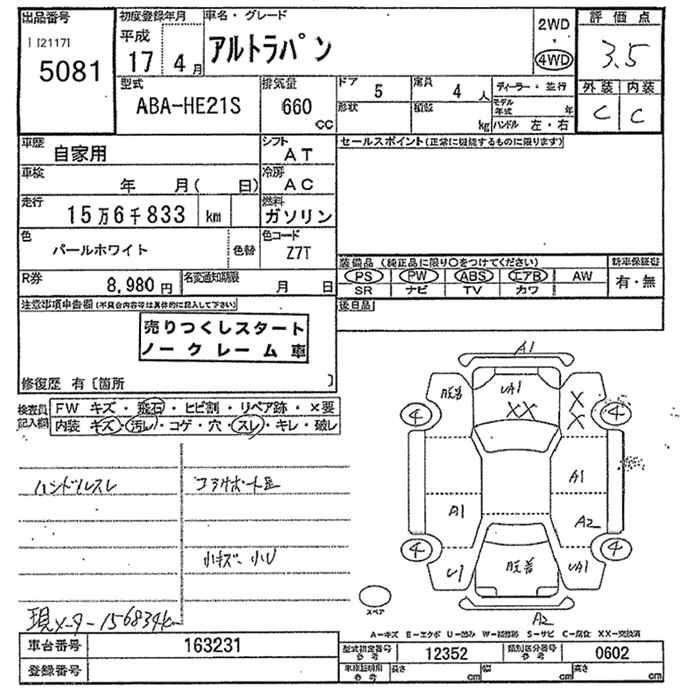 出品番号
[2117]
5081
初度登録年月
平成
17 4月
車名・グレード
アルトラパン
2WD
・
4WD
評価点
3.5
外装 内装
C C
型式
ABA-HE21S
排気量
660
cc
ドア 5
形状
定員 4 人
積載 kg
ディーラー・並行
モデル年式 年
ハンドル 左・右
車歴
自家用
シフト
AT
車検
年 月( 日)
冷房
AC
走行
15万6千833 km
燃料
ガソリン
色
パールホワイト
色替
色コード
Z7T
R券
8,980円
名変通知期限
月 日
セールスポイント(正常に機能するものに限ります)
装備品 (純正品に限り○をつけてください)
新車保証書
PS PW ABS エアB AW
有・無
SR ナビ TV カワ
後日品
注意事項申告欄(不具合内容等は具体的に記入して下さい)
売りつくしスタート
ノークレーム車
修復歴 有〔箇所 〕
検査員
記入欄
FW キズ・飛石・ヒビ割・リペア跡・×要
内装 キズ・汚レ・コゲ・穴・スレ・キレ・破レ
ハンドルスレ
コアサポート足
小キズ・小U
現メーター156834km
A1
脱着
UA1
XX
X
X
4
4
A1
A1
A2
4
4
U1
脱着
UA1
A2
スペア
A-キズ E-エクボ U-凹み W-補修跡 S-サビ C-腐食 XX-交換済
車台番号
163231
登録番号
型式指定番号
参考
12352
類別区分番号
参考
0602
車庫証明用
参考
長さ cm
幅 cm
高さ cm